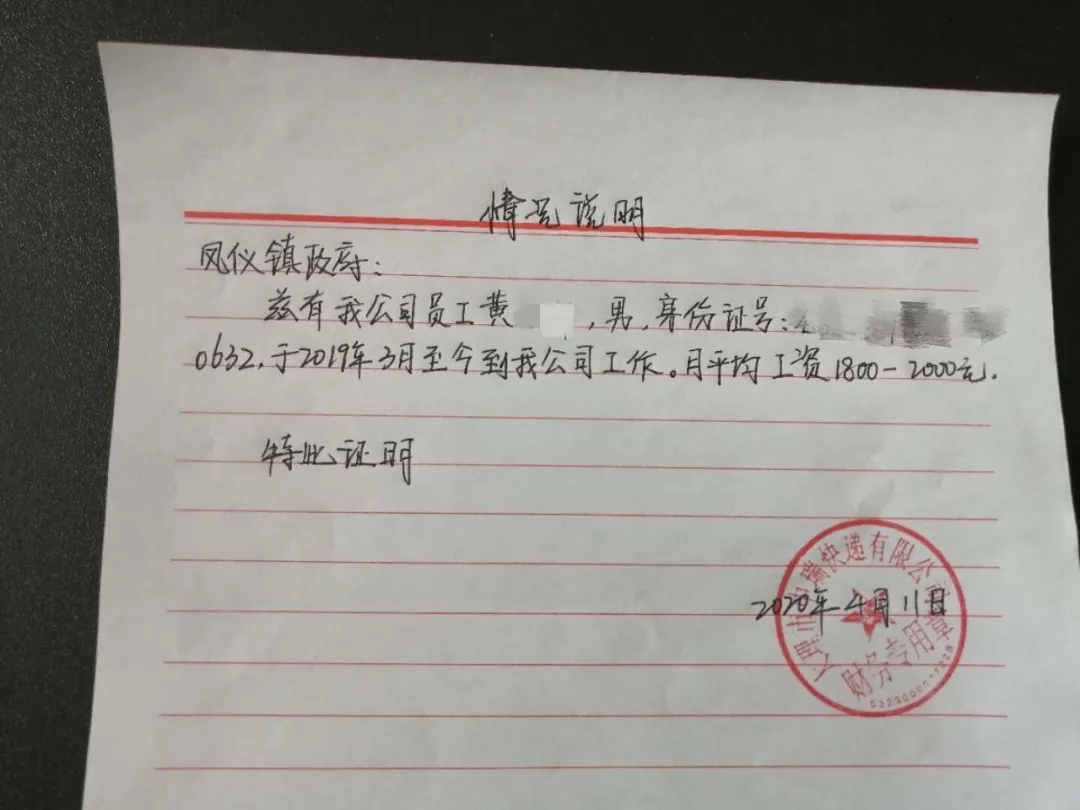 情况说明
凤仪镇政府:
兹有我公司员工黄 ,男,身份证号:
0632,于2019年3月至今到我公司工作。月平均工资1800-2000元.
特此证明
2020年4月11日
大理市 瑞快递有限公司
财务专用章